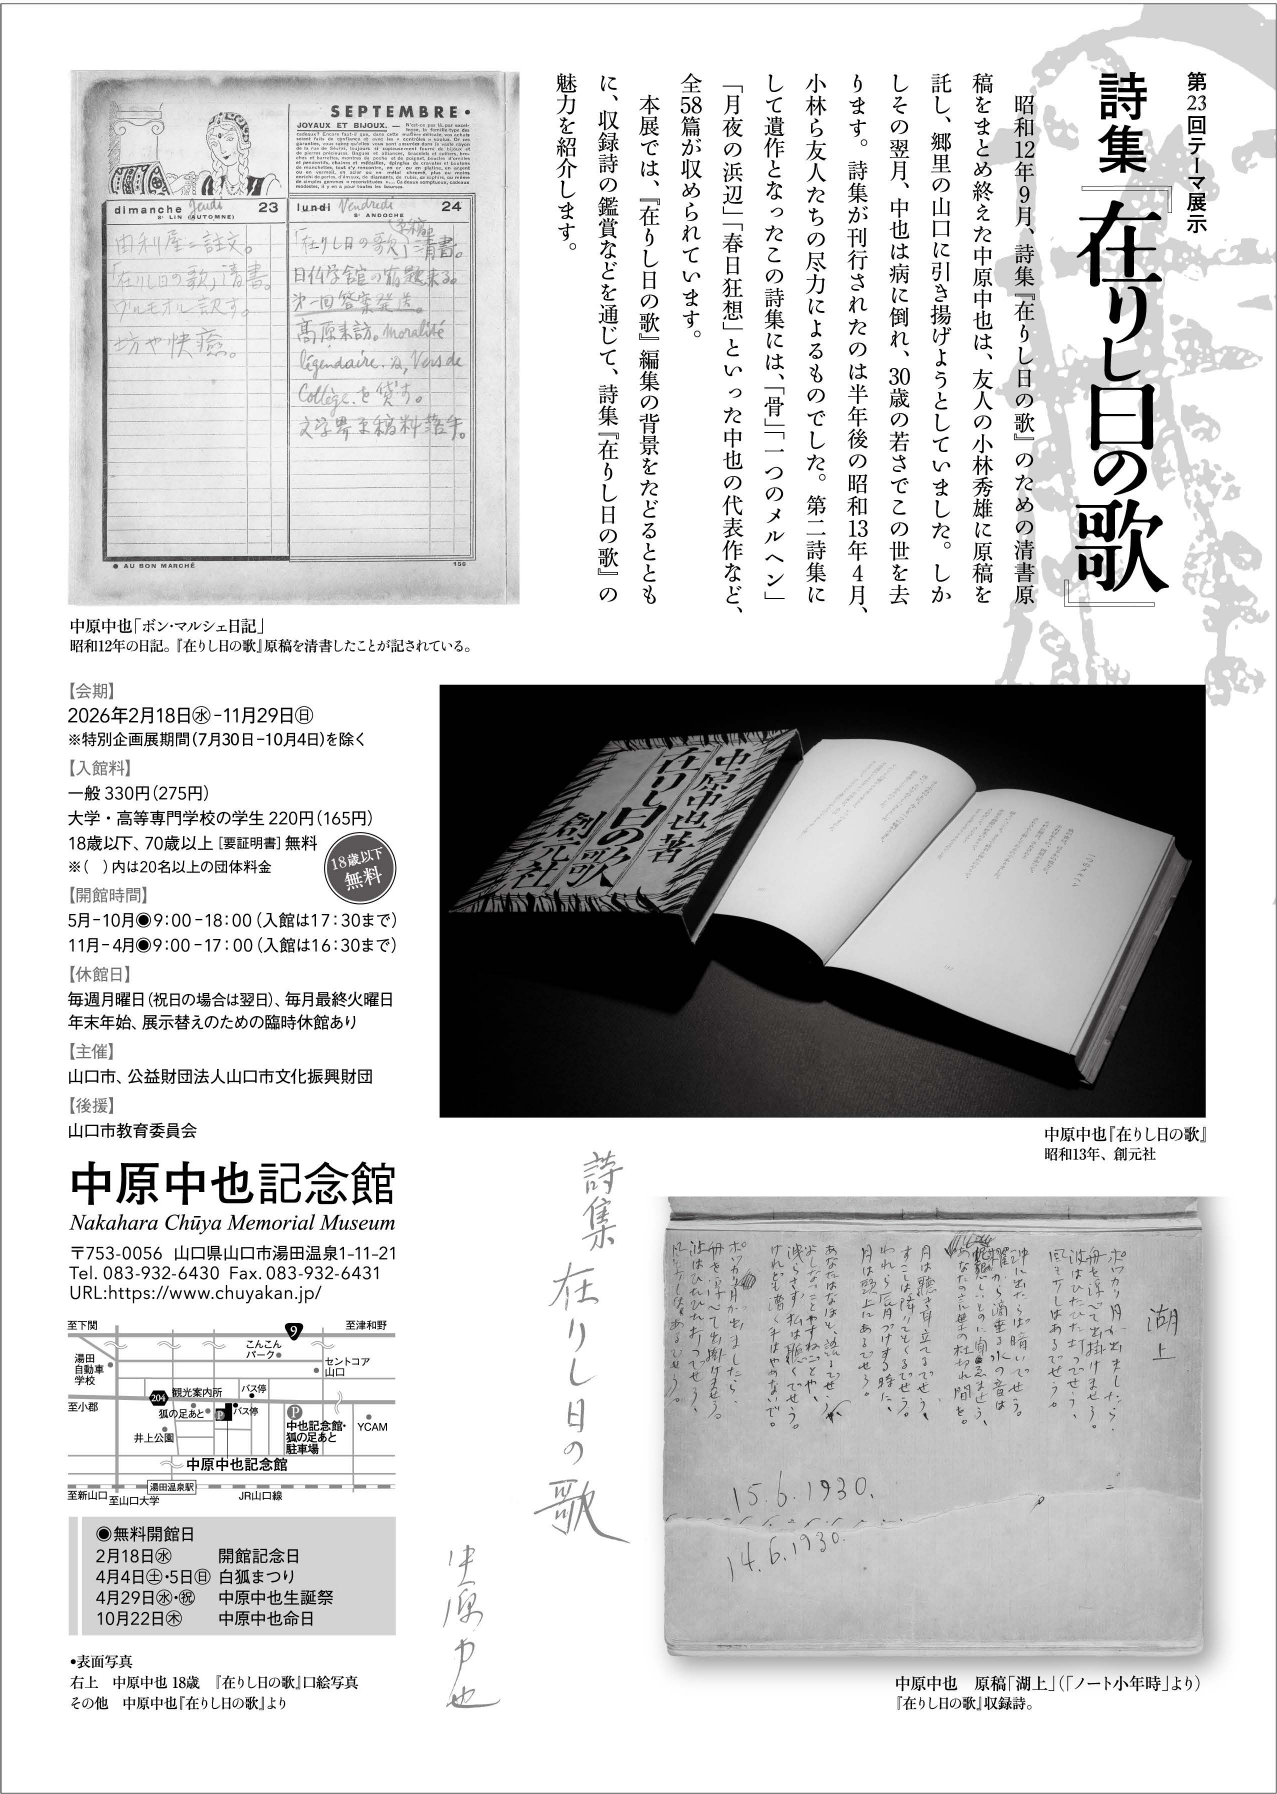 第23回テーマ展示
詩集『在りし日の歌』
昭和12年9月、詩集『在りし日の歌』のための清書原
稿をまとめ終えた中原中也は、友人の小林秀雄に原稿を
託し、郷里の山口に引き揚げようとしていました。しか
しその翌月、中也は病に倒れ、30歳の若さでこの世を去
ります。詩集が刊行されたのは半年後の昭和13年4月、
小林ら友人たちの尽力によるものでした。第二詩集に
して遺作となったこの詩集には、「骨」「一つのメルヘン」
「月夜の浜辺」「春日狂想」といった中也の代表作など、
全58篇が収められています。
本展では、『在りし日の歌』編集の背景をたどるととも
に、収録詩の鑑賞などを通じて、詩集『在りし日の歌』の
魅力を紹介します。
SEPTEMBRE
JOYAUX ET BIJOUX.
dimanche Jeudi 23
St LIN (AUTOMNE)
lundi Vendredi 24
St ANDOCHE
由利屋ニ註文。
「在りし日の歌」清書。
ヴルモオル訳す。
坊や快癒。
「在りし日の歌」清書。
日仏学館の宿題来る。
第一回答案発送。
高原来訪。moralité
légendaire. 及, Vers de
Collège. を貸す。
文学界主稿料落手。
AU BON MARCHÉ
156
中原中也「ボン・マルシェ日記」
昭和12年の日記。『在りし日の歌』原稿を清書したことが記されている。
【会期】
2026年2月18日㊌-11月29日㊐
※特別企画展期間(7月30日-10月4日)を除く
【入館料】
一般 330円(275円)
大学・高等専門学校の学生 220円(165円)
18歳以下、70歳以上[要証明書]無料
※( )内は20名以上の団体料金
18歳以下
無料
【開館時間】
5月-10月◉9:00-18:00(入館は17:30まで)
11月-4月◉9:00-17:00(入館は16:30まで)
【休館日】
毎週月曜日(祝日の場合は翌日)、毎月最終火曜日
年末年始、展示替えのための臨時休館あり
【主催】
山口市、公益財団法人山口市文化振興財団
【後援】
山口市教育委員会
中原中也著
在りし日の歌
創元社
中原中也『在りし日の歌』
昭和13年、創元社
中原中也記念館
Nakahara Chūya Memorial Museum
〒753-0056 山口県山口市湯田温泉1-11-21
Tel. 083-932-6430 Fax. 083-932-6431
URL:https://www.chuyakan.jp/
至下関
9
至津和野
湯田
自動車
学校
こんこん
パーク
セントコア
山口
204
観光案内所
バス停
至小郡
狐の足あと
P
バス停
P
井上公園
中也記念館・
狐の足あと
駐車場
YCAM
中原中也記念館
湯田温泉駅
至新山口
至山口大学
JR山口線
◉無料開館日
2月18日㊌ 開館記念日
4月4日㊏・5日㊐ 白狐まつり
4月29日㊌・㊗ 中原中也生誕祭
10月22日㊍ 中原中也命日
•表面写真
右上 中原中也 18歳 『在りし日の歌』口絵写真
その他 中原中也『在りし日の歌』より
詩集
在りし日の歌
中原中也
湖上
ポツカリ月が出ましたら、
舟を浮べて出掛けませう。
波はひたひた打つでせう、
風も少しはあるでせう。
沖に出たらば暗いでせう、
櫂から滴垂る水の音は
あなたの言葉の杜切れ間を。
月は聴き耳立てるでせう、
すこしは降りても来るでせう、
われら接唇する時に、
月は頭上にあるでせう。
あなたはなほも、語るでせう、
よしないことやすねごとや、
洩らさず私は聴くでせう、
けれど漕ぐ手はやめないで。
ポツカリ月が出ましたら、
舟を浮べて出掛けませう。
波はひたひた打つでせう、
風も少しはあるでせう。
15.6.1930.
14.6.1930.
中原中也 原稿「湖上」(「ノート小年時」より)
『在りし日の歌』収録詩。